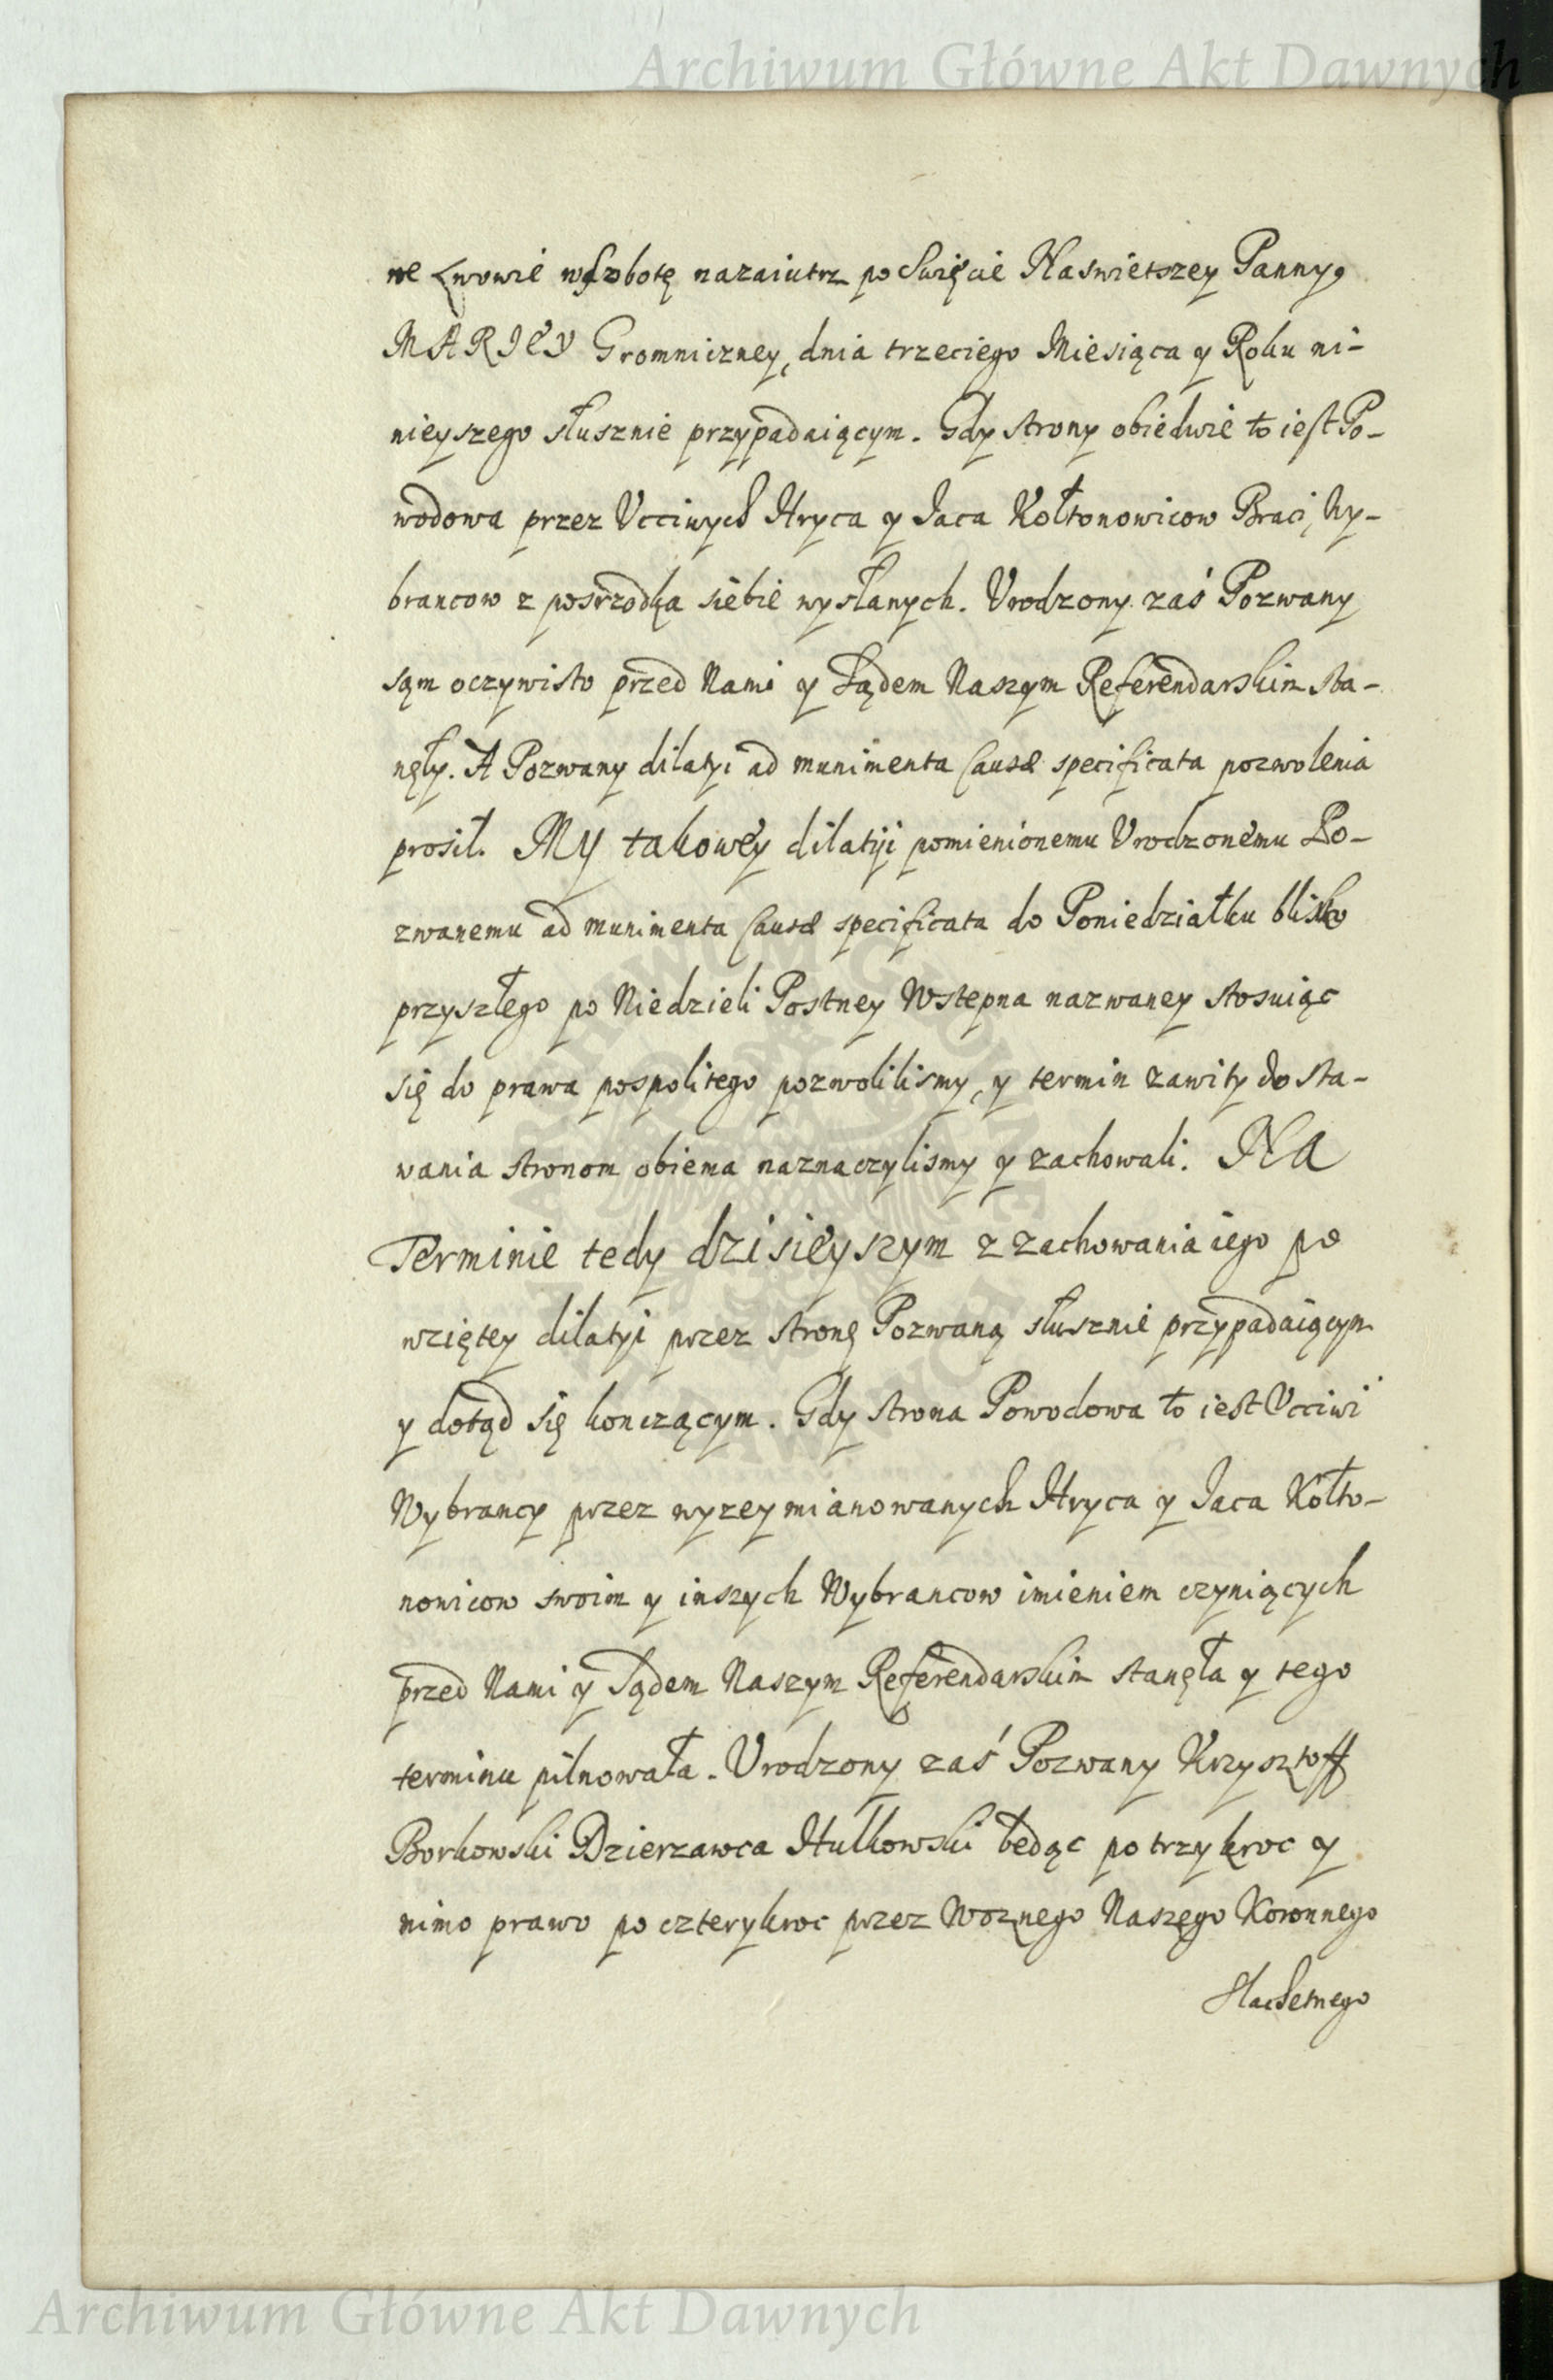 Archiwum Główne Akt Dawnych
we Lwowie w Sobotę nazaiutrz po Swięcie Naswietszey Panny,
MARIEY Gromniczney, dnia trzeciego Miesiąca y Roku ni-
nieyszego słusznie przypadaiącym. Gdy strony obiedwie to iest Po-
wodowa przez Vcciwych Hryca y Iaca Kołtonowicow Braci, Wy-
brancow z posrzodka siebie wysłanych. Vrodzony zaś Pozwany
sąm oczywisto przed Nami y Sądem Naszym Referendarskim sta-
nęły. A Pozwany dilatyi ad munimenta Causæ specificata pozwolenia
prosił. My takowey dilatyi pomienionemu Vrodzonemu Po-
zwanemu ad munimenta Causæ specificata do Poniedziałku blisko
przyszłego po Niedzieli Postney Wstepna nazwaney stosuiąc
się do prawa pospolitego pozwolilismy, y termin zawity do sta-
wania stronom obiema naznaczylismy y zachowali. Na
Terminie tedy dzisieyszym z zachowania iego po
wziętey dilatyi przez stronę Pozwaną słusznie przypadaiącym
y dotąd się konczącym. Gdy strona Powodowa to iest Vcciwi
Wybrancy przez wyzey mianowanych Hryca y Iaca Kołto-
nowicow swoim y inszych Wybrancow imieniem czyniących
przed Nami y Sądem Naszym Referendarskim stanęła y tego
terminu pilnowała. Vrodzony zaś Pozwany Krzysztoff
Borkowski Dzierzawca Hulkowski będąc po trzykroc y
mimo prawo po czterykroc przez Woznego Naszego Koronnego
Slachetnego
Archiwum Główne Akt Dawnych